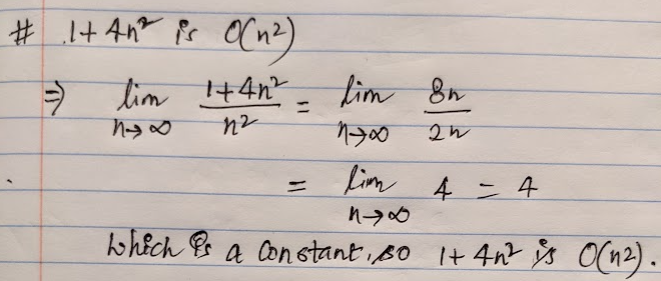 # 1+4n² is O(n²)
⇒ lim n→∞ (1+4n²)/n² = lim n→∞ 8n/2n
= lim n→∞ 4 = 4
which is a constant, so 1+4n² is O(n²).